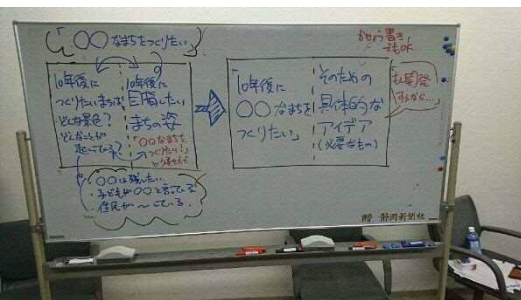 「○○なまちをつくりたい」
10年後に
つくりたいまちは
どんな景色？
どんなことが
起こっている？
10年後に
目指したい
まちの姿
「○○なまちを
つくりたい！」
○○は残したい
子どもが○○と言っている
住民が〜している
「10年後に
○○なまちを
つくりたい」
そのための
具体的な
アイデア
(必要なもの)
かじょう書き
でもOK
静岡新聞社